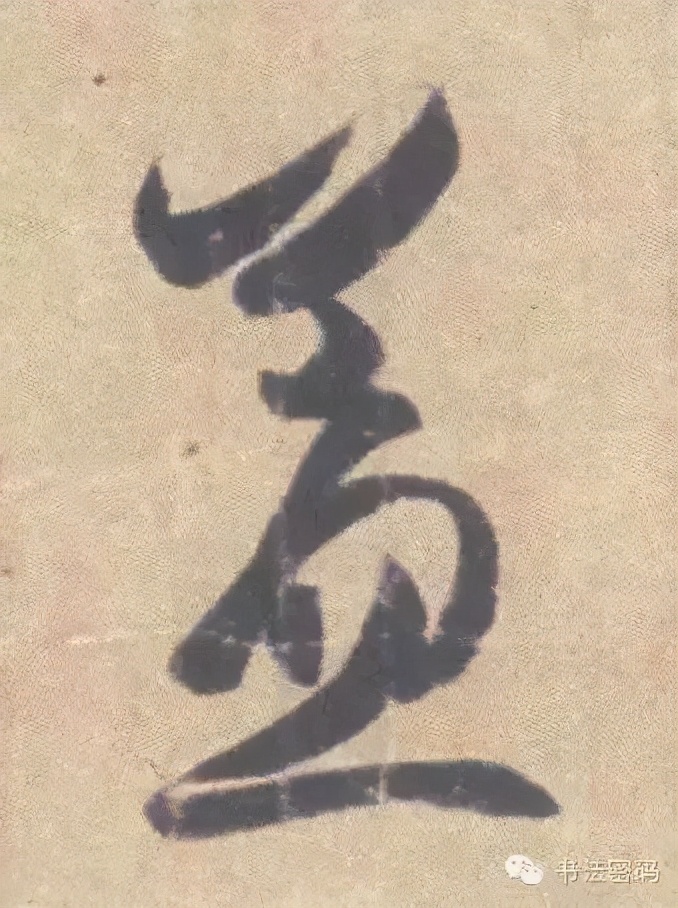 盖
书法密码